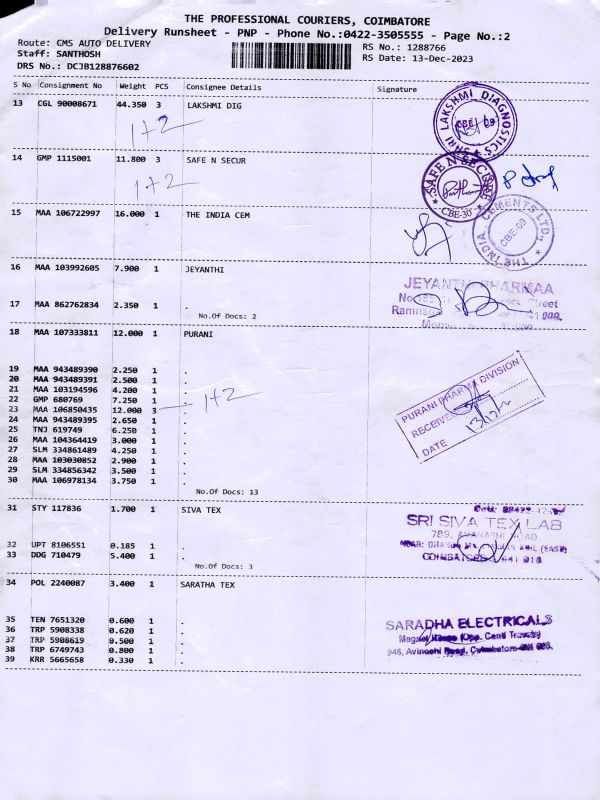 THE PROFESSIONAL COURIERS, COIMBATORE
Delivery Runsheet - PNP - Phone No.:0422-3505555 - Page No.:2
Route: CMS AUTO DELIVERY
RS No.: 1288766
Staff: SANTHOSH
RS Date: 13-Dec-2023
DRS No.: DCJB128876602
S No Consignment No Weight PCS Consignee Details Signature
13 CGL 90008671 44.350 3 LAKSHMI DIG
1+2
SHRI LAKSHMI DIAGNOSTICS
CBE-09
14 GMP 1115001 11.800 3 SAFE N SECUR
1+2
SAFE N SECURE
CBE-30
15 MAA 106722997 16.000 1 THE INDIA CEM
THE INDIA CEMENTS LTD.
CBE-09
16 MAA 103992605 7.900 1 JEYANTHI
JEYANTHI DHARMAA
Street
17 MAA 862762834 2.350 1 .
No.Of Docs: 2
18 MAA 107333811 12.000 1 PURANI
19 MAA 943489390 2.250 1 .
20 MAA 943489391 2.500 1 .
21 MAA 103194596 4.200 1 .
22 GMP 680769 7.250 1 .
23 MAA 106850435 12.000 3 . 1+2
24 MAA 943489395 2.650 1 .
25 TNJ 619749 6.250 1 .
26 MAA 104364419 3.000 1 .
27 SLM 334861489 4.250 1 .
28 MAA 103030852 2.900 1 .
29 SLM 334856342 3.500 1 .
30 MAA 106978134 3.750 1 .
PURANI DHARYA DIVISION
RECEIVED
DATE
No.Of Docs: 13
31 STY 117836 1.700 1 SIVA TEX
SRI SIVA TEX LAB
789, AVANASHI ROAD
32 UPT 8106551 0.185 1 .
33 DDG 710479 5.400 1 .
COIMBATORE - 641 018
No.Of Docs: 3
34 POL 2240087 3.400 1 SARATHA TEX
35 TEN 7651320 0.600 1 .
36 TRP 5908338 0.620 1 .
37 TRP 5908619 0.500 1 .
38 TRP 6749743 0.800 1 .
39 KRR 5665658 0.330 1 .
SARADHA ELECTRICALS
946, Avinashi Road, Coimbatore